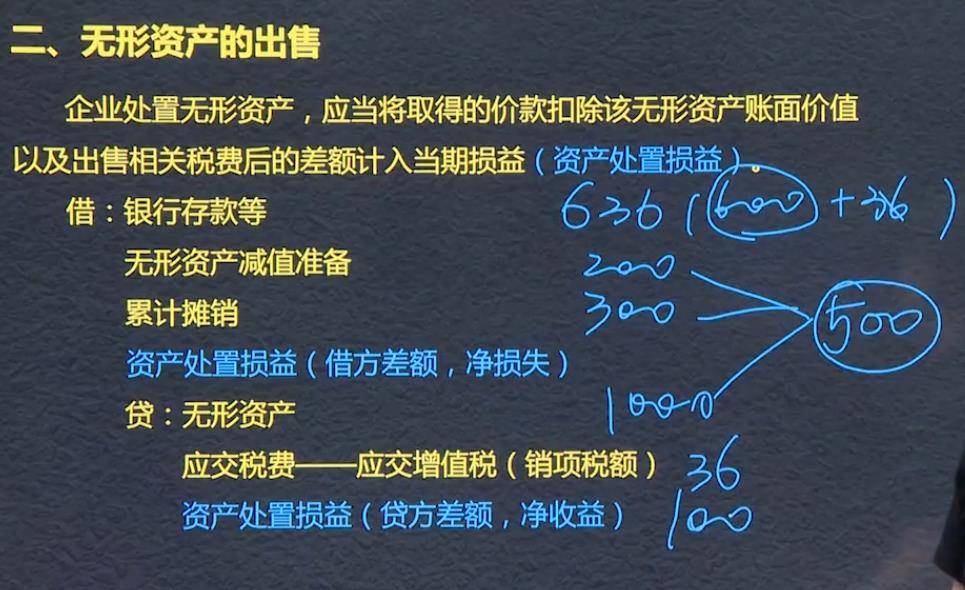 二、无形资产的出售
企业处置无形资产，应当将取得的价款扣除该无形资产账面价值
以及出售相关税费后的差额计入当期损益（资产处置损益）。
借：银行存款等 636（600+36）
无形资产减值准备 200
累计摊销 300 500
资产处置损益（借方差额，净损失）
贷：无形资产 1000
应交税费——应交增值税（销项税额） 36
资产处置损益（贷方差额，净收益） 100